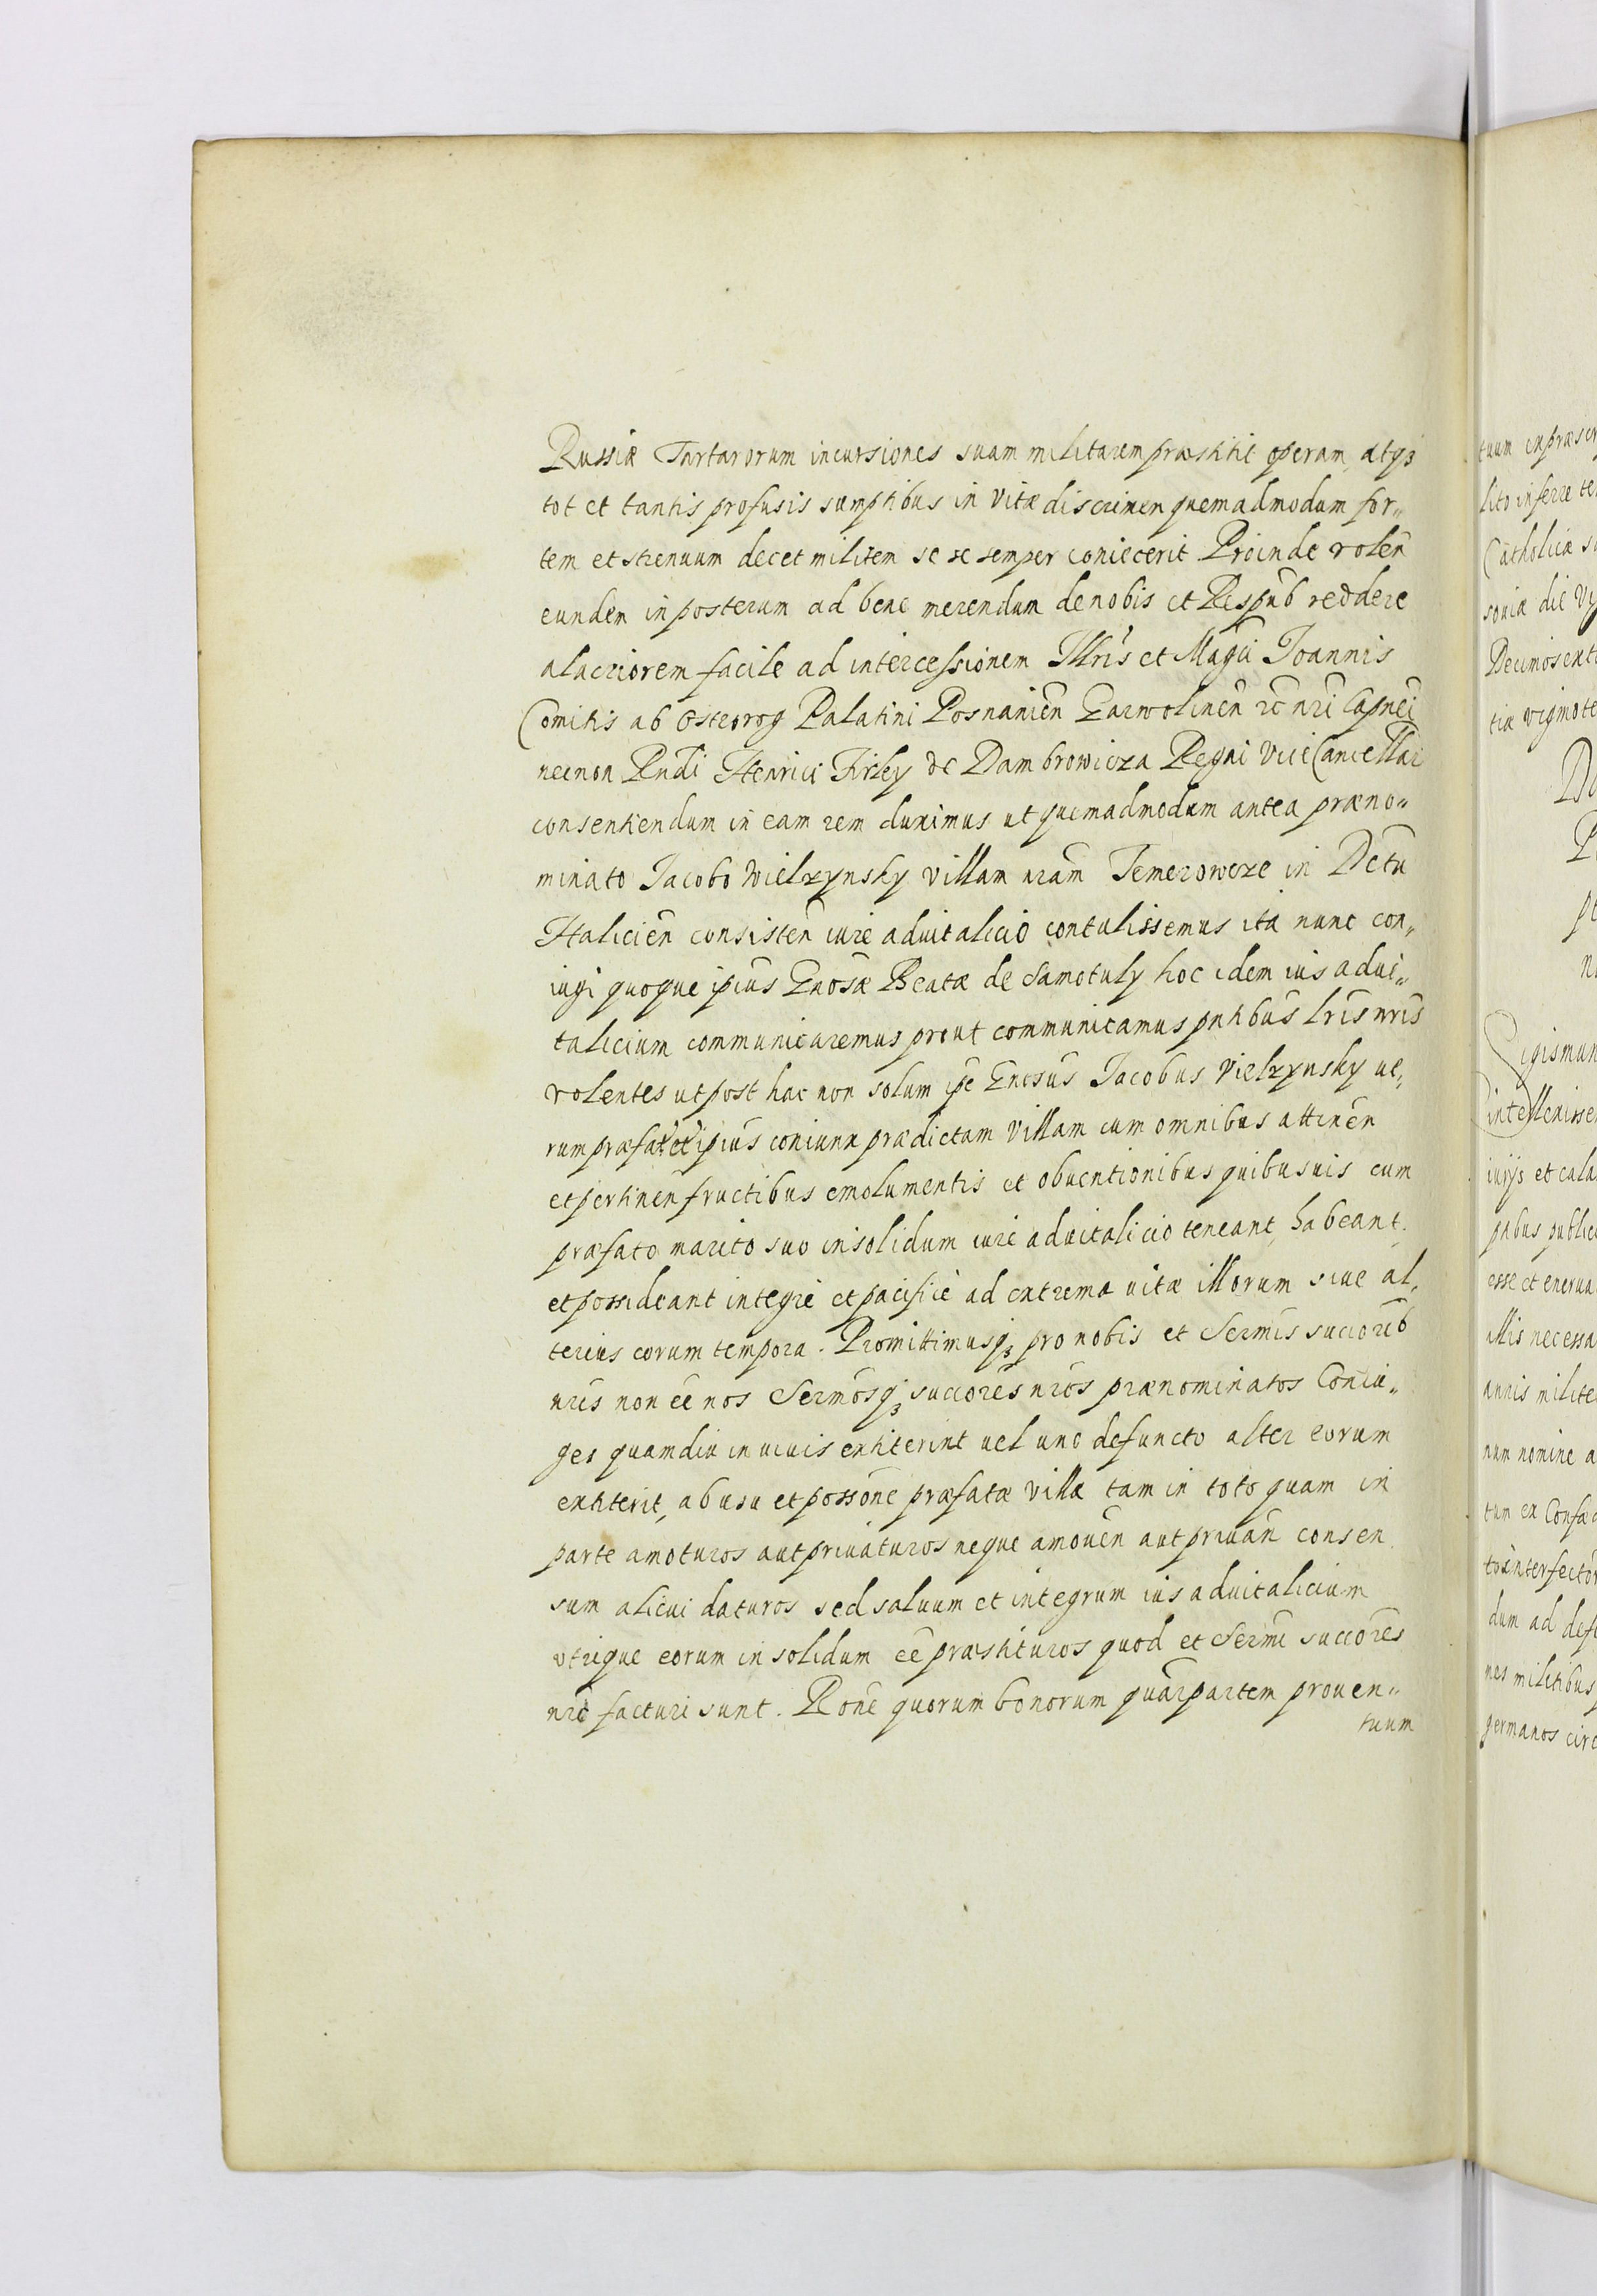 Russiæ Tartarorum incursiones suam militarem præstitit operam, atq3
tot et tantis profusis sumptibus in vitæ discrimen quemadmodum for„
tem et strenuum decet militem se se semper coniecerit Proinde volen̄
eundem in posterum ad bene merendum de nobis et Respub̄ reddere
alacriorem facile ad intercessionem Illris et Magci Joannis
Comitis ab Osteorog Palatini Posnanien̄ Garwolinen̄ rc nri Capnei
necnon Rndi Henrici Firley de Dambrowicza Regni ViceCancellar
consentiendum in eam rem duximus ut quemadmodum antea præno„
minato Jacobo Wielzynsky villam nram Temerowcze in Dctu
Halicien̄ consisten̄ iure aduitalicio contulissemus ita nunc con„
iugi quoque ipius Gnosæ Beatæ de Samotuly hoc idem ius adui„
talicium communicaremus prout communicamus pntibus lris nris
volentes ut post hac non solum ipe Gnosus Jacobus Vielzynsky ve„
rum præfata et ipius coniunx prædictam Villam cum omnibus attinen̄
et pertinen fructibus emolumentis et obuentionibus quibusuis cum
præfato marito suo insolidum iure aduitalicio teneant, habeant,
et possideant integre et pacifice ad extrema vitæ illorum siue al„
terius eorum tempora. Promittimusq3 pro nobis et Sermis succorib
nris non ee nos Sermosq3 succores nros prænominatos Coniu„
ges quamdiu in viuis extiterint vel uno defuncto alter eorum
extiterit, ab usu et possone præfatæ villæ tam in toto quam in
parte amoturos aut priuaturos neque amouen̄ aut priuan̄ consen
sum alicui daturos sed saluum et integrum ius aduitalicium
vtrique eorum insolidum ee præstituros quod et Sermi succores
nri facturi sunt. Rone quorum bonorum quar partem prouen„
tuum